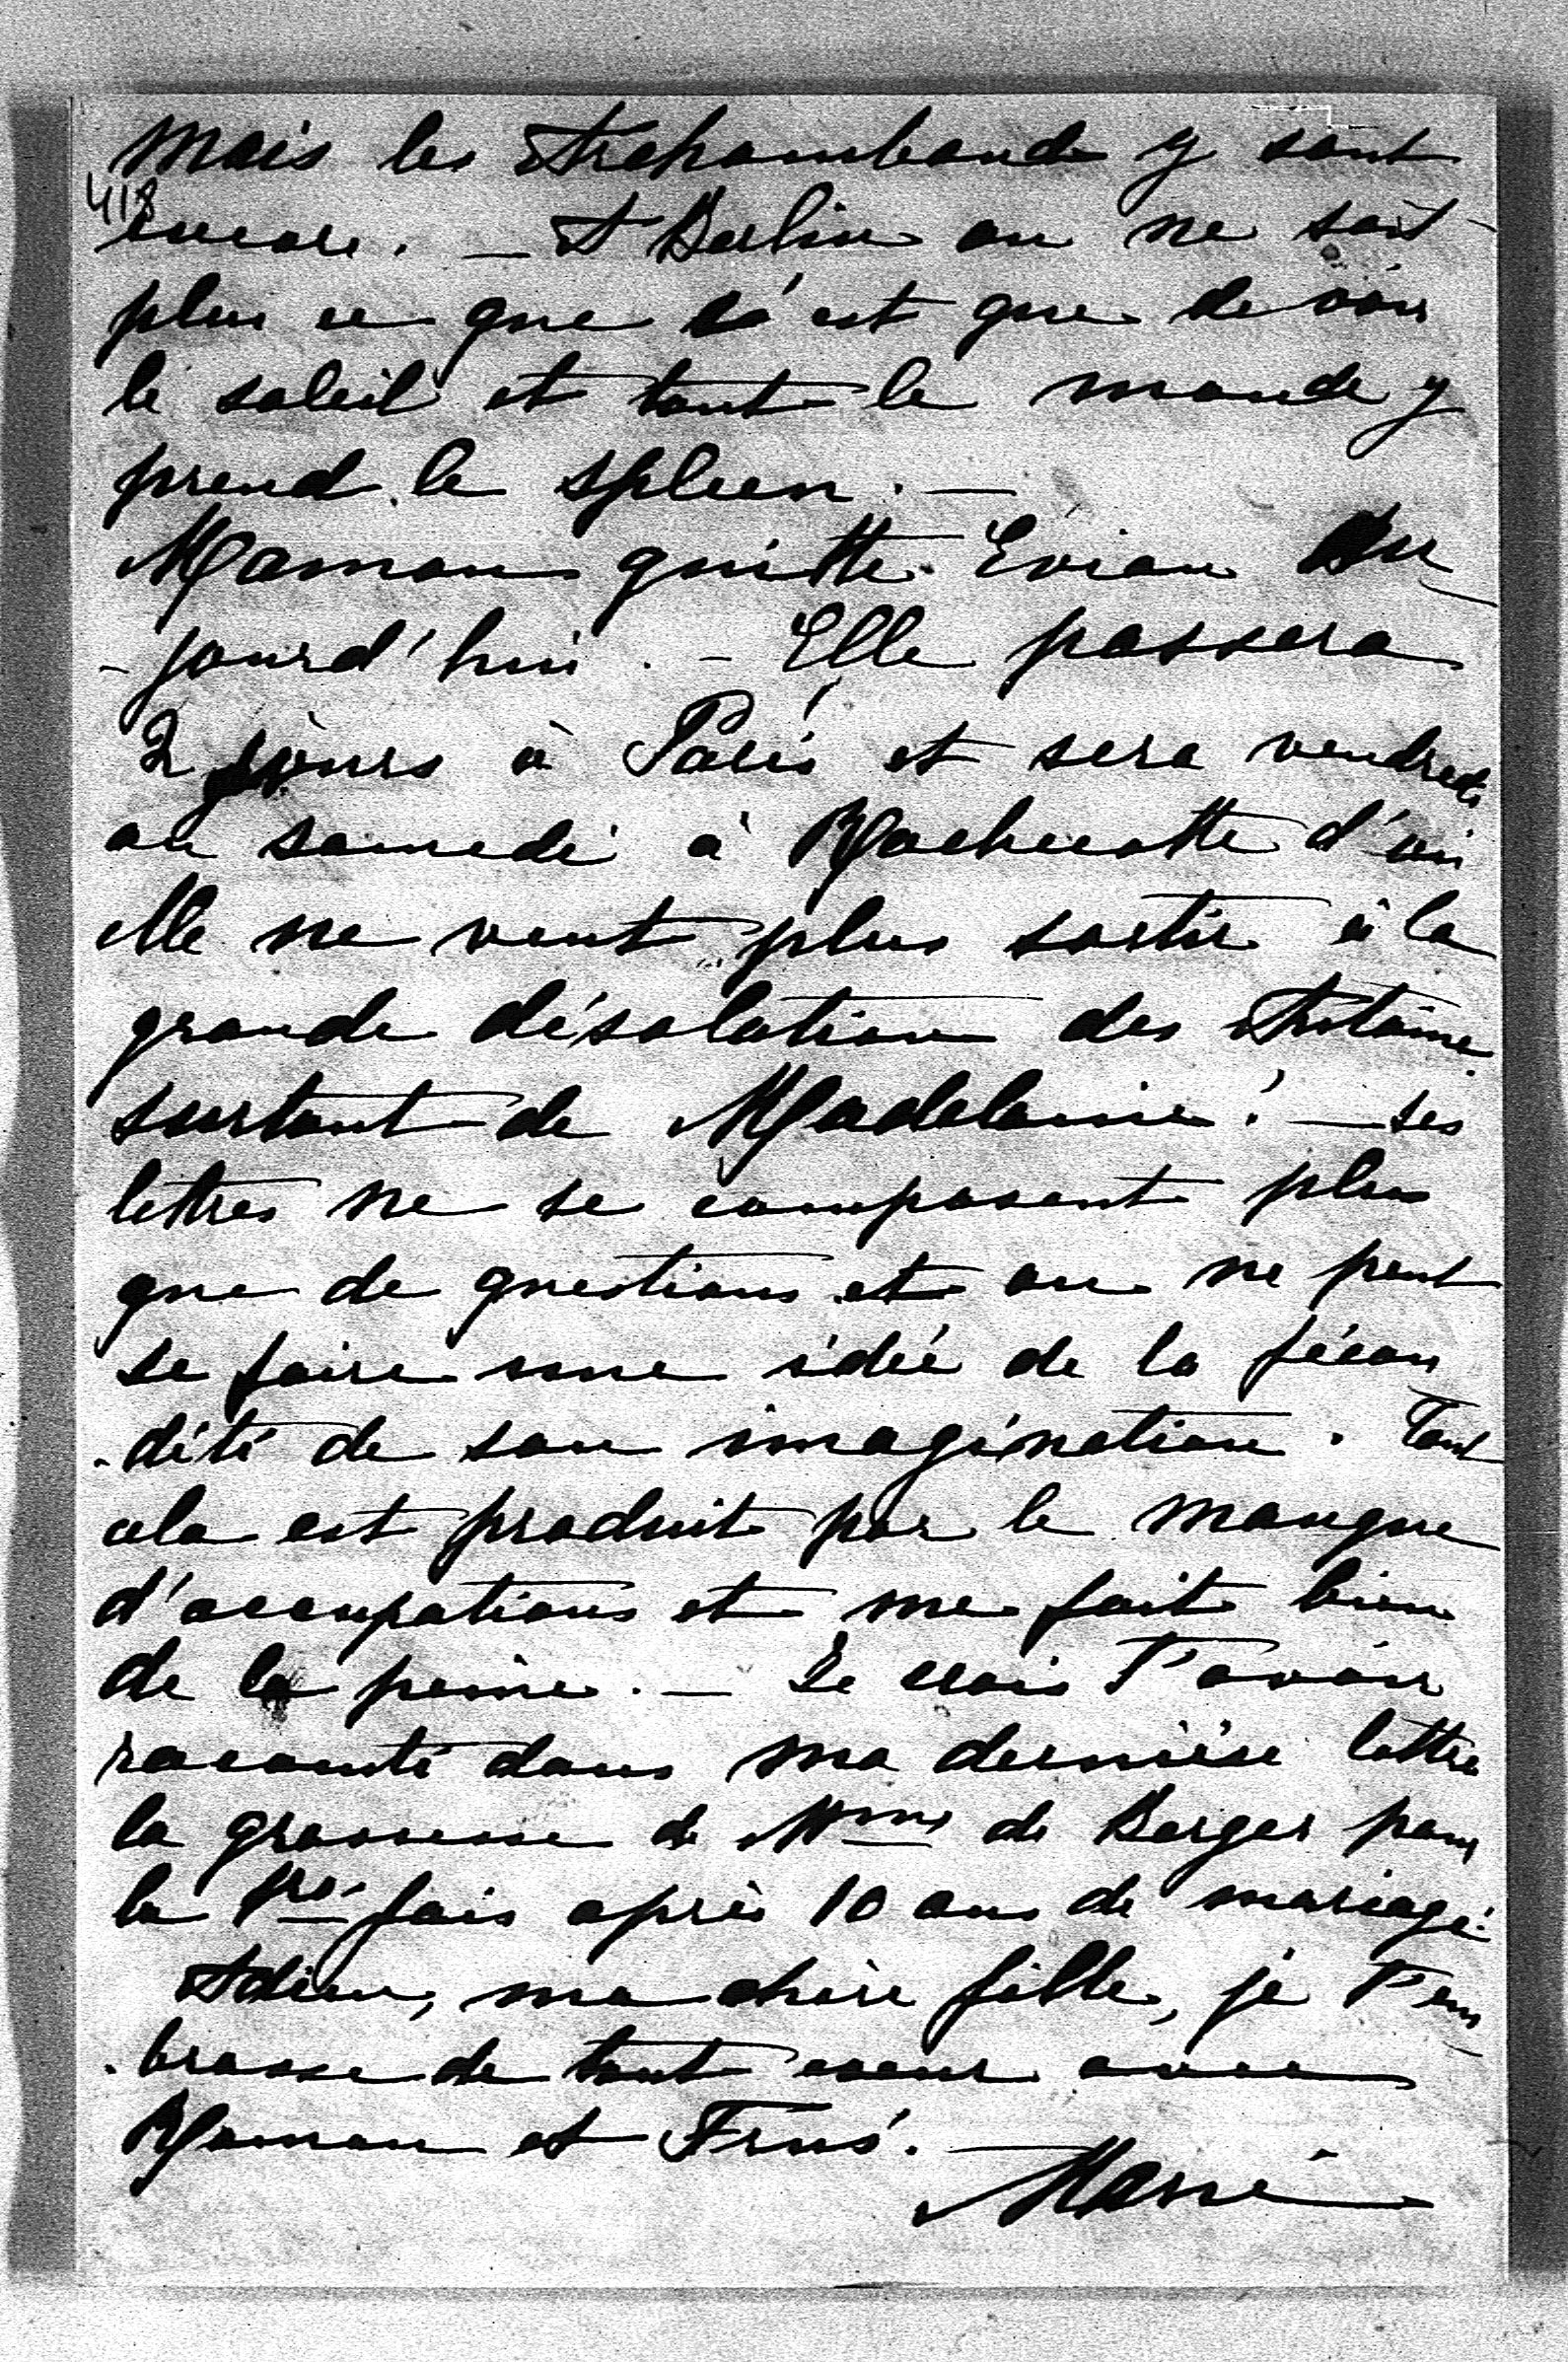 Mais les Arapambaud y sont
418
encore. — A Berlin on ne sait
plus ce que c'est que de voir
le soleil et tout le monde y
prend le spleen. —
Maman quitte Evian Au
-jourd'hui. — Elle passera
2 jours à Paris et sera vendredi
ou samedi à Rochecotte d'où
elle ne veut plus sortir à la
grande désolation des Antoine
surtout de Madelaine! — ses
lettres ne se composent plus
que de questions et on ne peut
se faire une idée de la fécon
-dité de son imagination. Tout
cela est produit par le manque
d'occupations et me fait bien
de la peine. — Je crois t'avoir
raconté dans ma dernière lettre
la grossesse de Mme de Berger pour
la 1re fois après 10 ans de mariage.
Adieu, ma chère fille, je t'em
-brasse de tout coeur avec
Maman et
Marie